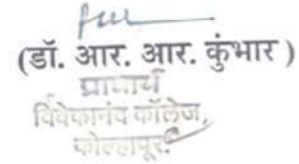 (डॉ. आर. आर. कुंभार )
प्राचार्य
विवेकानंद कॉलेज,
कोल्हापूर.